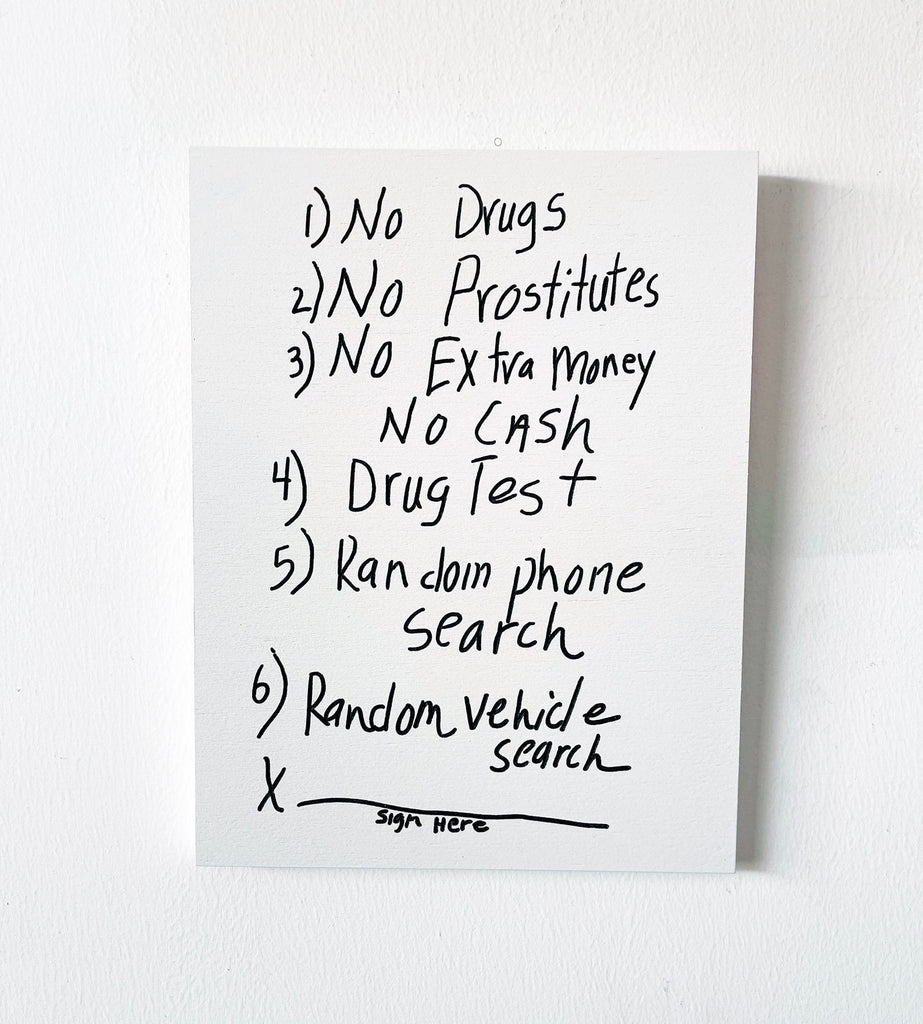 1) No Drugs
2) No Prostitutes
3) No Extra Money
No CASh
4) Drug Test
5) Random phone
search
6) Random vehicle
search
X
Sign Here